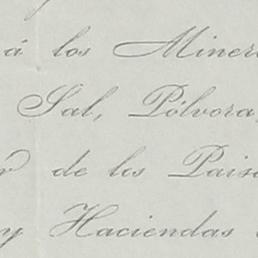 á los Minera
Sal, Pólvora,
de los Paise
y Haciendas